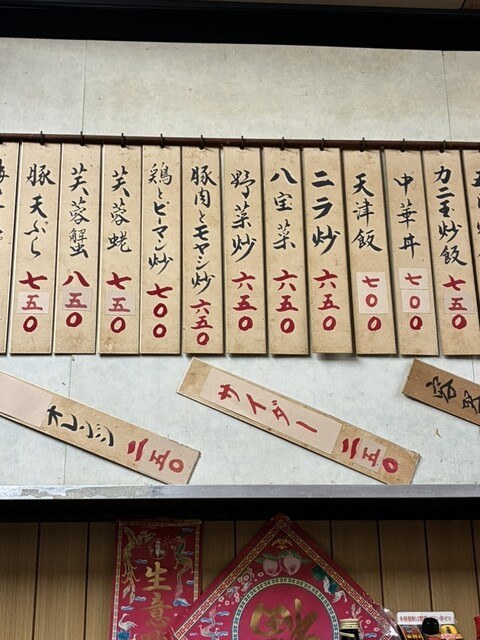 カニ玉炒飯 七五〇
中華丼 七〇〇
天津飯 七〇〇
ニラ炒 六五〇
八宝菜 六五〇
野菜炒 六五〇
豚肉とモヤシ炒 六五〇
鶏とピーマン炒 七〇〇
芙蓉蛯 七五〇
芙蓉蟹 八五〇
豚天ぷら 七五〇
サイダー 二五〇
オレンジ 二五〇
生意